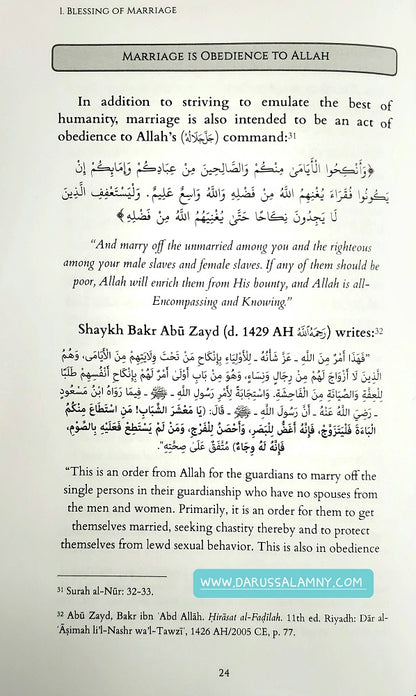 1. BLESSING OF MARRIAGE
MARRIAGE IS OBEDIENCE TO ALLAH
In addition to striving to emulate the best of
humanity, marriage is also intended to be an act of
obedience to Allah's (جَلَّجَلَالُهُ) command:³¹
﴿وَأَنْكِحُوا الْأَيَامَىٰ مِنْكُمْ وَالصَّالِحِينَ مِنْ عِبَادِكُمْ وَإِمَائِكُمْ إِنْ
يَكُونُوا فُقَرَاءَ يُغْنِهِمُ اللَّهُ مِنْ فَضْلِهِ وَاللَّهُ وَاسِعٌ عَلِيمٌ . وَلْيَسْتَعْفِفِ الَّذِينَ
لَا يَجِدُونَ نِكَاحًا حَتَّىٰ يُغْنِيَهُمُ اللَّهُ مِنْ فَضْلِهِ﴾
"And marry off the unmarried among you and the righteous
among your male slaves and female slaves. If any of them should be
poor, Allah will enrich them from His bounty, and Allah is all-
Encompassing and Knowing."
Shaykh Bakr Abū Zayd (d. 1429 AH رَحِمَهُ اللَّهُ) writes:³²
"فَهَذَا أَمْرٌ مِنَ اللَّهِ ـ عَزَّ شَأْنُهُ ـ لِلْأَوْلِيَاءِ بِإِنْكَاحِ مَنْ تَحْتَ وِلَايَتِهِمْ مِنَ الْأَيَامَى، وَهُمُ
الَّذِينَ لَا أَزْوَاجَ لَهُمْ مِنْ رِجَالٍ وَنِسَاءٍ، وَهُوَ مِنْ بَابٍ أَوْلَى أَمْرٌ لَهُمْ بِإِنْكَاحِ أَنْفُسِهِمْ طَلَبًا
لِلْعِفَّةِ وَالصِّيَانَةِ مِنَ الْفَاحِشَةِ. وَاسْتِجَابَةً لِأَمْرِ رَسُولِ اللَّهِ ـ ﷺ ـ فِيمَا رَوَاهُ ابْنُ مَسْعُودٍ
ـ رَضِيَ اللَّهُ عَنْهُ ـ أَنَّ رَسُولَ اللَّهِ ـ ﷺ ـ قَالَ: (يَا مَعْشَرَ الشَّبَابِ! مَنِ اسْتَطَاعَ مِنْكُمُ
الْبَاءَةَ فَلْيَتَزَوَّجْ، فَإِنَّهُ أَغَضُّ لِلْبَصَرِ، وَأَحْصَنُ لِلْفَرْجِ، وَمَنْ لَمْ يَسْتَطِعْ فَعَلَيْهِ بِالصَّوْمِ،
فَإِنَّهُ لَهُ وِجَاءٌ) مُتَّفَقٌ عَلَى صِحَّتِهِ".
"This is an order from Allah for the guardians to marry off the
single persons in their guardianship who have no spouses from
the men and women. Primarily, it is an order for them to get
themselves married, seeking chastity thereby and to protect
themselves from lewd sexual behavior. This is also in obedience
WWW.DARUSSALAMNY.COM
³¹ Surah al-Nūr: 32-33.
³² Abū Zayd, Bakr ibn ʿAbd Allāh. Ḥirāsat al-Faḍīlah. 11th ed. Riyadh: Dār al-
ʿĀṣimah li'l-Nashr wa'l-Tawzīʿ, 1426 AH/2005 CE, p. 77.
24